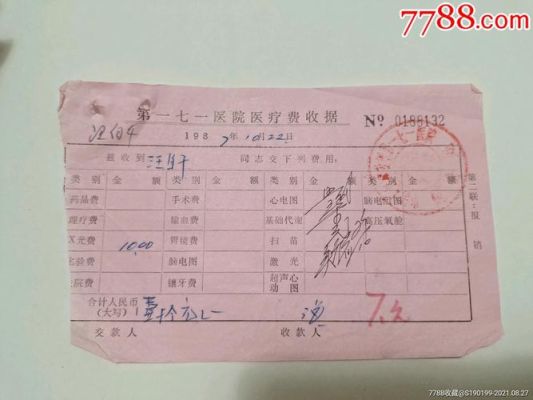 7788.com
第一七一医院医疗费收据
No 0186132
1987年10月22日
兹收到汪 同志交下列费用：
类别 金额 类别 金额 类别 金额 类别 金额
药品费 手术费 心电图 脑电阻图
理疗费 输血费 基础代谢 高压氧舱
X光费 10.00 胃镜费 扫描
化验费 脑电图 激光
住院费 镶牙费 超声心动图
合计人民币
(大写) 壹拾元 7元
交款人 收款人
第二联：报销
7788收藏@S190199-2021.08.27